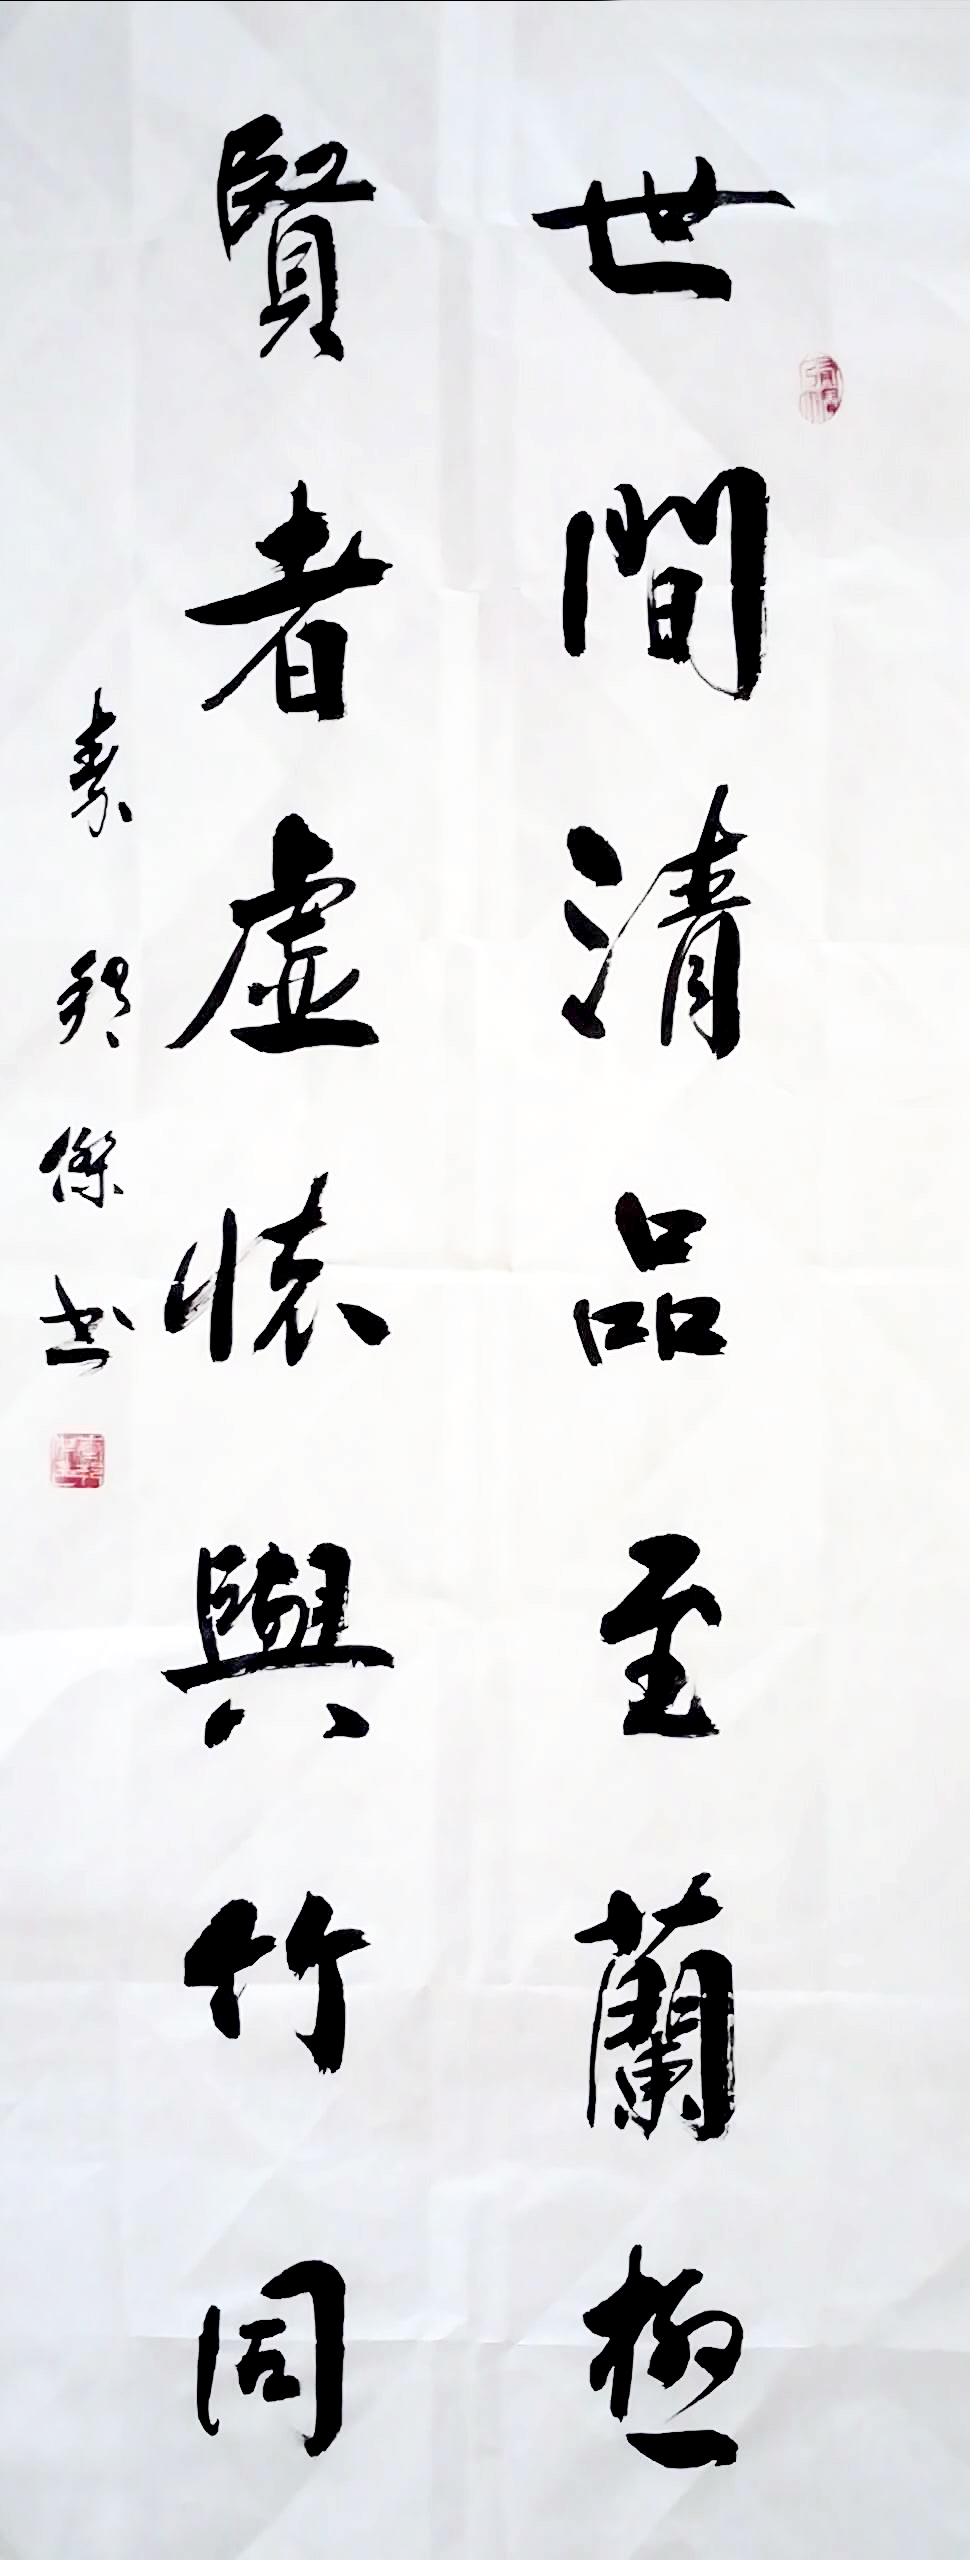 世間清品至蘭極
賢者虛懷與竹同
傑書